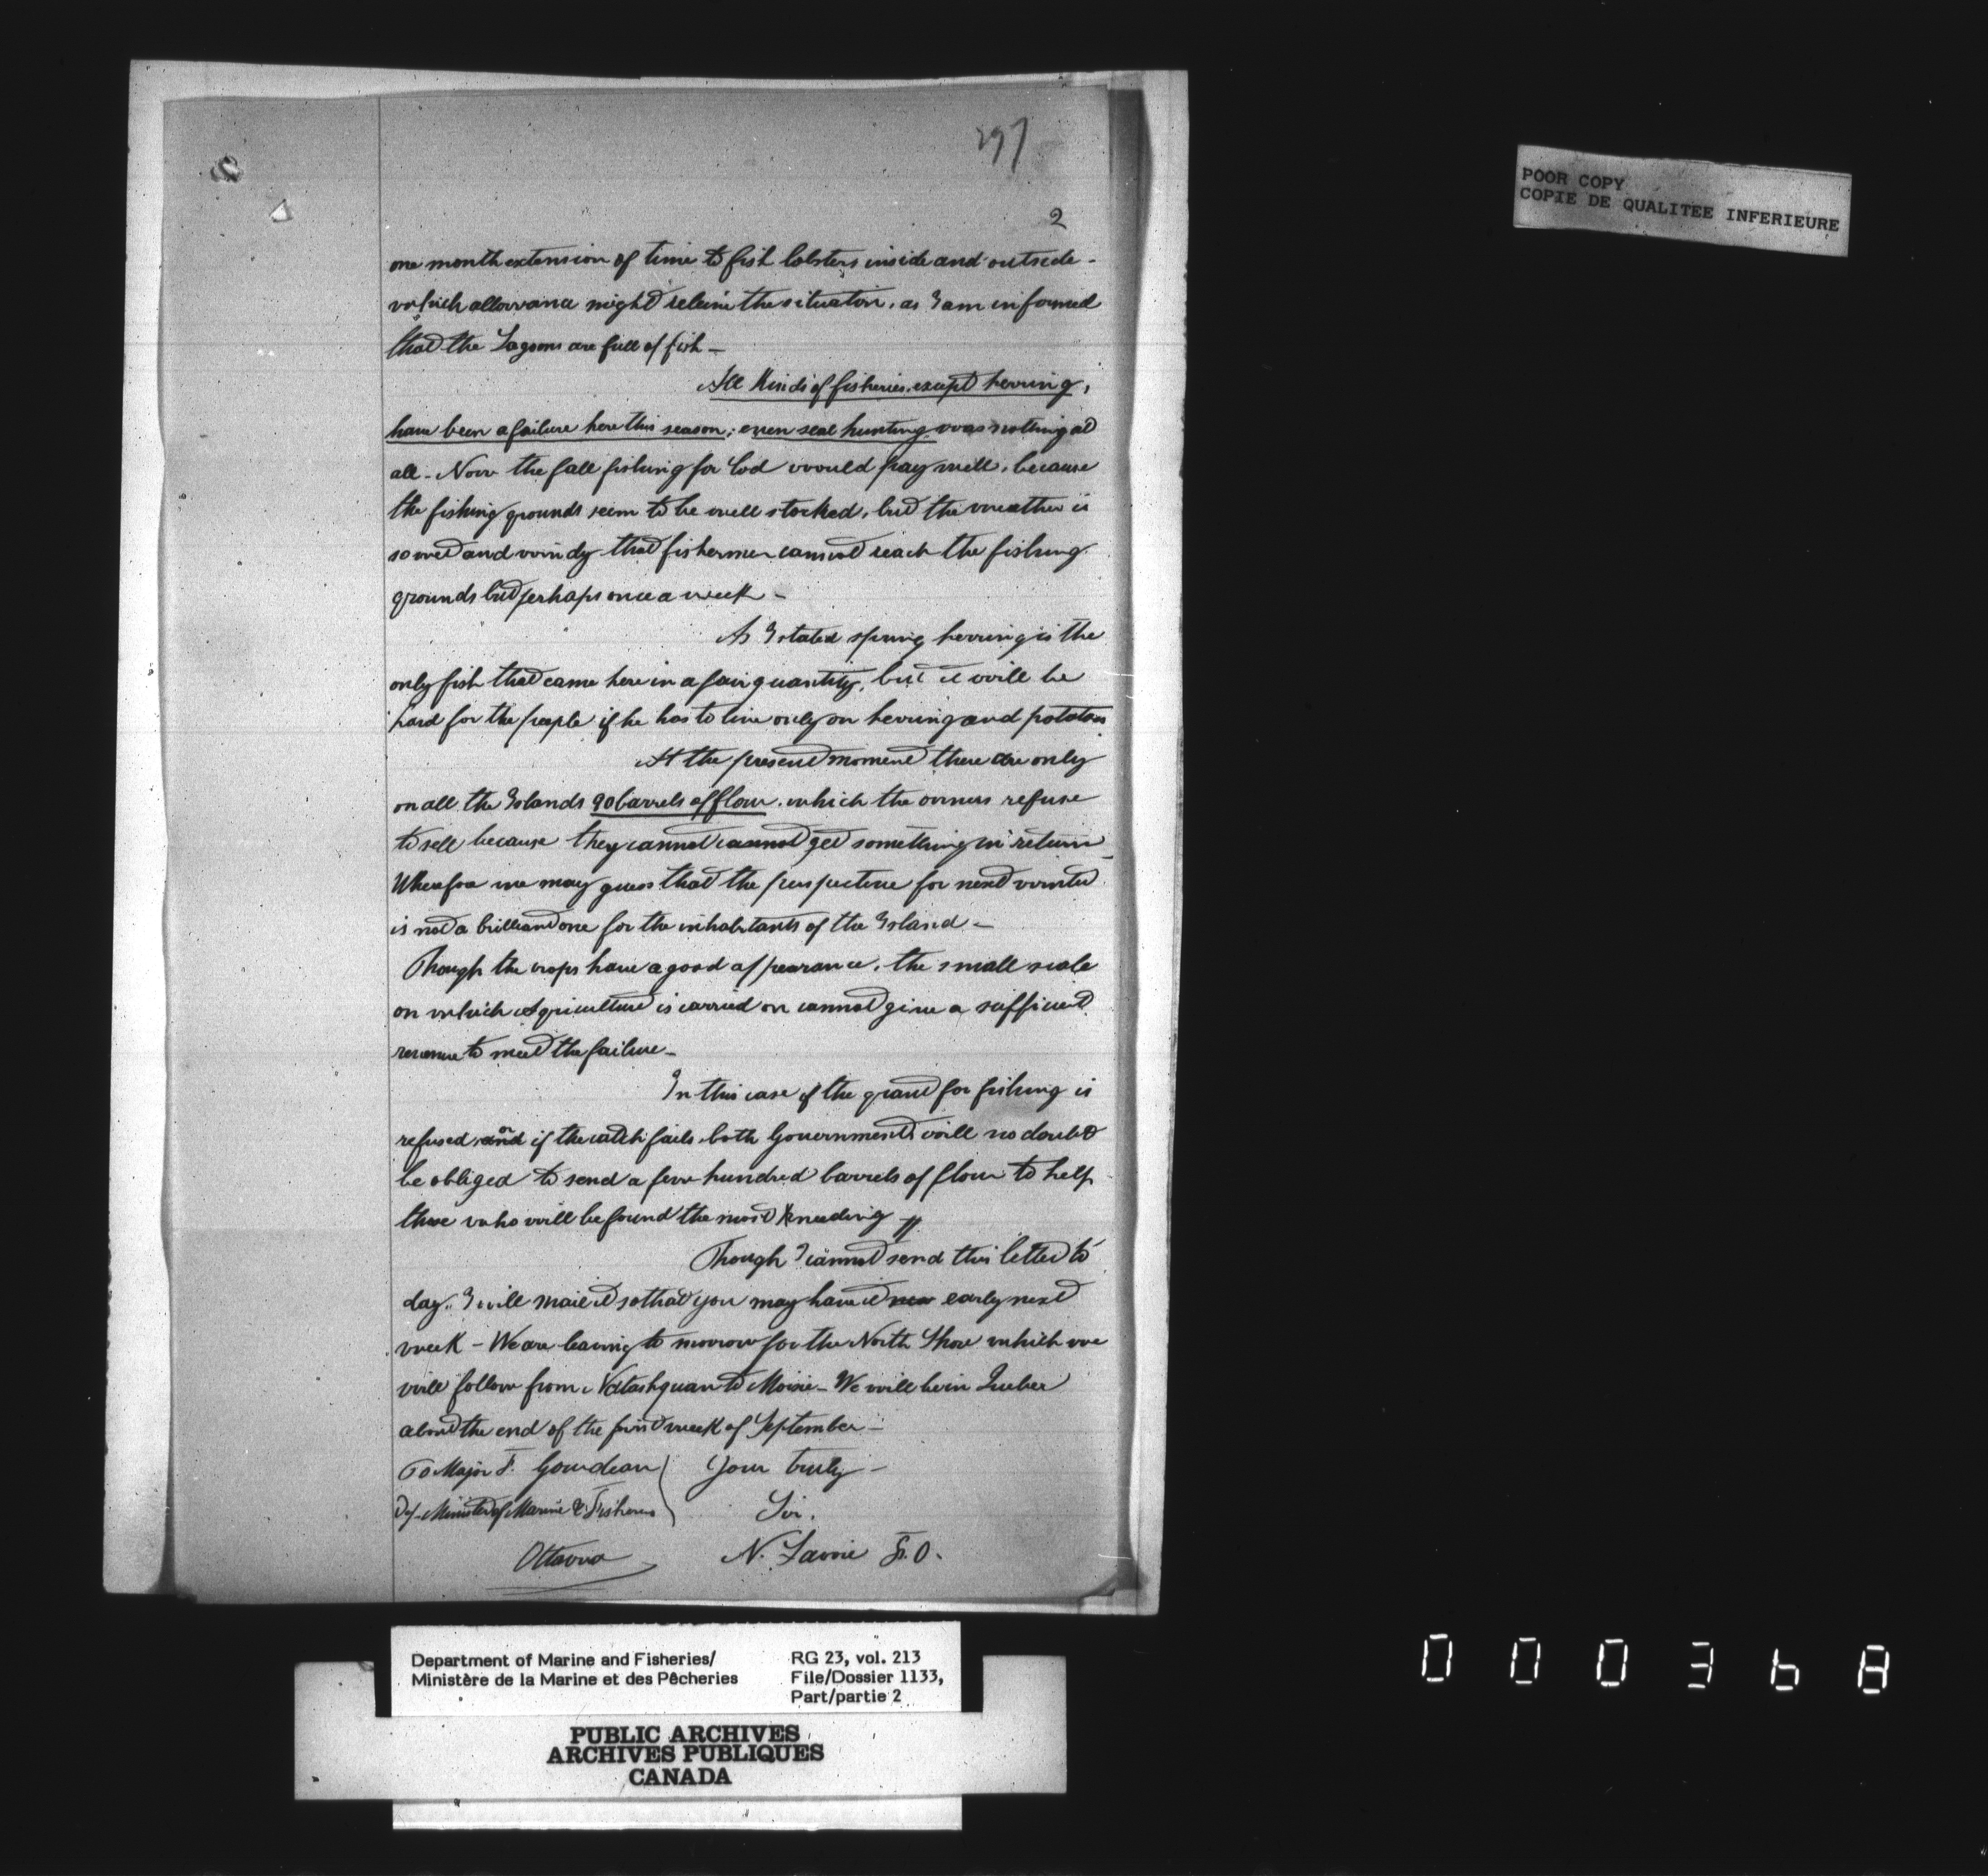 297
2
one month extension of time to fish lobsters inside and outside -
which allowance might releive the situation, as I am informed
that the Lagoons are full of fish -
All Kinds of fisheries, except herring,
have been a failure here this season; even seal hunting was nothing at
all - Now the fall fishing for Cod would pay well, because
the fishing grounds seem to be well stocked, but the weather is
so wet and windy that fishermen cannot reach the fishing
grounds but perhaps once a week -
As I stated spring herring is the
only fish that came here in a fair quantity, but it will be
hard for the people if he has to live only on herring and potatoes
At the present moment there are only
on all the Islands 90 barrels of flour, which the owners refuse
to sell because they cannot cannot get something in return -
Wherefore we may guess that the perspective for next winter
is not a brilliant one for the inhabitants of the Island -
Though the crops have a good appearance, the small scale
on which Agriculture is carried on cannot give a sufficient
revenue to meet the failure -
In this case if the grant for fishing is
refused and or if the catch fails both Governments will no doubt
be obliged to send a few hundred barrels of flour to help
those who will be found the most kneeding
Though I cannot send this letter to
day, I will mail it so that you may have it early next
week - We are leaving to morrow for the North Shore which we
will follow from Natashquan to Moisie - We will be in Quebec
about the end of the first week of September -
To Major F. Gourdeau
Your truly -
Dy-Minister of Marine & Fisheries
Sir,
Ottawa
N. Lavoie F.O.
POOR COPY
COPIE DE QUALITEE INFERIEURE
Department of Marine and Fisheries/
Ministère de la Marine et des Pêcheries
RG 23, vol. 213
File/Dossier 1133,
Part/partie 2
PUBLIC ARCHIVES
ARCHIVES PUBLIQUES
CANADA
000368